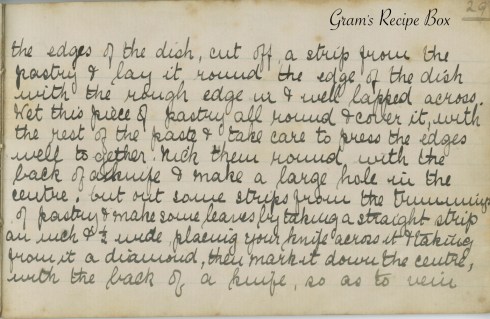 Gram's Recipe Box
29
the edges of the dish, cut off, a strip from the
pastry & lay it, round the edge of the dish
with the rough edge in & well lapped across.
Wet this piece of pastry all round & cover it, with
the rest of the paste & take care to press the edges
well to gether. Nick them round, with the
back of a knife & make a large hole in the
centre. but out some strips from the trimmings
of pastry & make some leaves, by taking a straight strip
an inch & ½ wide, placing your knife across it & taking
from it a diamond, then mark it down the centre,
with the back of a knife, so as to vein